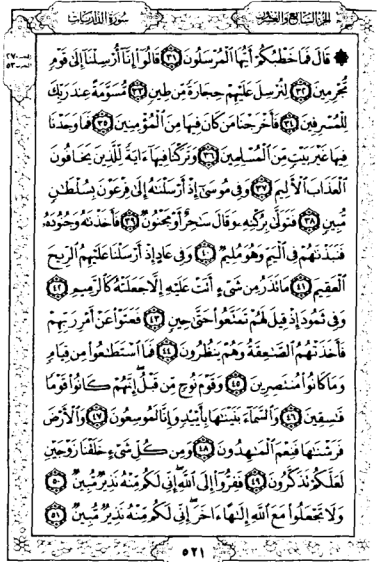 الجزء السابع والعشرون
سورة الذاريات
۞ قَالَ فَمَا خَطْبُكُمْ أَيُّهَا ٱلْمُرْسَلُونَ ٣١ قَالُوٓا۟ إِنَّآ أُرْسِلْنَآ إِلَىٰ قَوْمٍ
مُّجْرِمِينَ ٣٢ لِنُرْسِلَ عَلَيْهِمْ حِجَارَةً مِّن طِينٍ ٣٣ مُّسَوَّمَةً عِندَ رَبِّكَ
لِلْمُسْرِفِينَ ٣٤ فَأَخْرَجْنَا مَن كَانَ فِيهَا مِنَ ٱلْمُؤْمِنِينَ ٣٥ فَمَا وَجَدْنَا
فِيهَا غَيْرَ بَيْتٍ مِّنَ ٱلْمُسْلِمِينَ ٣٦ وَتَرَكْنَا فِيهَآ ءَايَةً لِّلَّذِينَ يَخَافُونَ
ٱلْعَذَابَ ٱلْأَلِيمَ ٣٧ وَفِى مُوسَىٰٓ إِذْ أَرْسَلْنَٰهُ إِلَىٰ فِرْعَوْنَ بِسُلْطَٰنٍ
مُّبِينٍ ٣٨ فَتَوَلَّىٰ بِرُكْنِهِۦ وَقَالَ سَٰحِرٌ أَوْ مَجْنُونٌ ٣٩ فَأَخَذْنَٰهُ وَجُنُودَهُۥ
فَنَبَذْنَٰهُمْ فِى ٱلْيَمِّ وَهُوَ مُلِيمٌ ٤٠ وَفِى عَادٍ إِذْ أَرْسَلْنَا عَلَيْهِمُ ٱلرِّيحَ
ٱلْعَقِيمَ ٤١ مَا تَذَرُ مِن شَىْءٍ أَتَتْ عَلَيْهِ إِلَّا جَعَلَتْهُ كَٱلرَّمِيمِ ٤٢
وَفِى ثَمُودَ إِذْ قِيلَ لَهُمْ تَمَتَّعُوا۟ حَتَّىٰ حِينٍ ٤٣ فَعَتَوْا۟ عَنْ أَمْرِ رَبِّهِمْ
فَأَخَذَتْهُمُ ٱلصَّٰعِقَةُ وَهُمْ يَنظُرُونَ ٤٤ فَمَا ٱسْتَطَٰعُوا۟ مِن قِيَامٍ
وَمَا كَانُوا۟ مُنتَصِرِينَ ٤٥ وَقَوْمَ نُوحٍ مِّن قَبْلُ إِنَّهُمْ كَانُوا۟ قَوْمًا
فَٰسِقِينَ ٤٦ وَٱلسَّمَآءَ بَنَيْنَٰهَا بِأَيْي۟دٍ وَإِنَّا لَمُوسِعُونَ ٤٧ وَٱلْأَرْضَ
فَرَشْنَٰهَا فَنِعْمَ ٱلْمَٰهِدُونَ ٤٨ وَمِن كُلِّ شَىْءٍ خَلَقْنَا زَوْجَيْنِ
لَعَلَّكُمْ تَذَكَّرُونَ ٤٩ فَفِرُّوٓا۟ إِلَى ٱللَّهِ إِنِّى لَكُم مِّنْهُ نَذِيرٌ مُّبِينٌ ٥٠
وَلَا تَجْعَلُوا۟ مَعَ ٱللَّهِ إِلَٰهًا ءَاخَرَ إِنِّى لَكُم مِّنْهُ نَذِيرٌ مُّبِينٌ ٥١
٥٢١